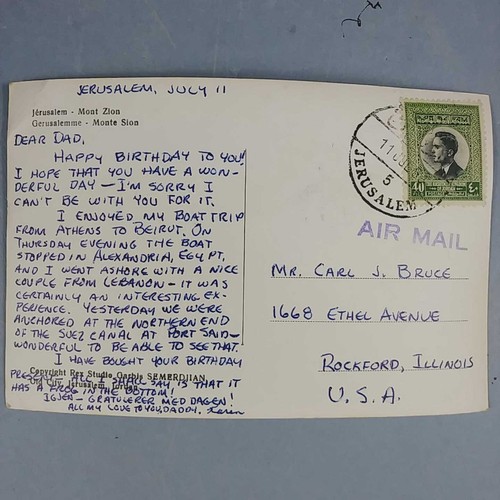 JERUSALEM, JULY 11
Jérusalem - Mont Zion
Gerusalemme - Monte Sion
DEAR DAD,
HAPPY BIRTHDAY TO YOU!
I HOPE THAT YOU HAVE A WON-
DERFUL DAY - I'M SORRY I
CAN'T BE WITH YOU FOR IT.
I ENJOYED MY BOAT TRIP
FROM ATHENS TO BEIRUT. ON
THURSDAY EVENING THE BOAT
STOPPED IN ALEXANDRIA, EGYPT,
AND I WENT ASHORE WITH A NICE
COUPLE FROM LEBANON - IT WAS
CERTAINLY AN INTERESTING EX-
PERIENCE. YESTERDAY WE WERE
ANCHORED AT THE NORTHERN END
OF THE SUEZ CANAL AT PORT SAID -
WONDERFUL TO BE ABLE TO SEE THAT.
I HAVE BOUGHT YOUR BIRTHDAY
Copyright Rex Studio Garbis SEMERDJIAN
PRESENT - ALL I SHALL SAY IS THAT IT
Old City, Jerusalem, Jordan
HAS A FROG IN THE BOTTOM!
IGJEN - GRATULERER MED DAGEN!
ALL MY LOVE TO YOU, DADDY, Karen
40
JERUSALEM
5
AIR MAIL
MR. CARL J. BRUCE
1668 ETHEL AVENUE
ROCKFORD, ILLINOIS
U.S.A.